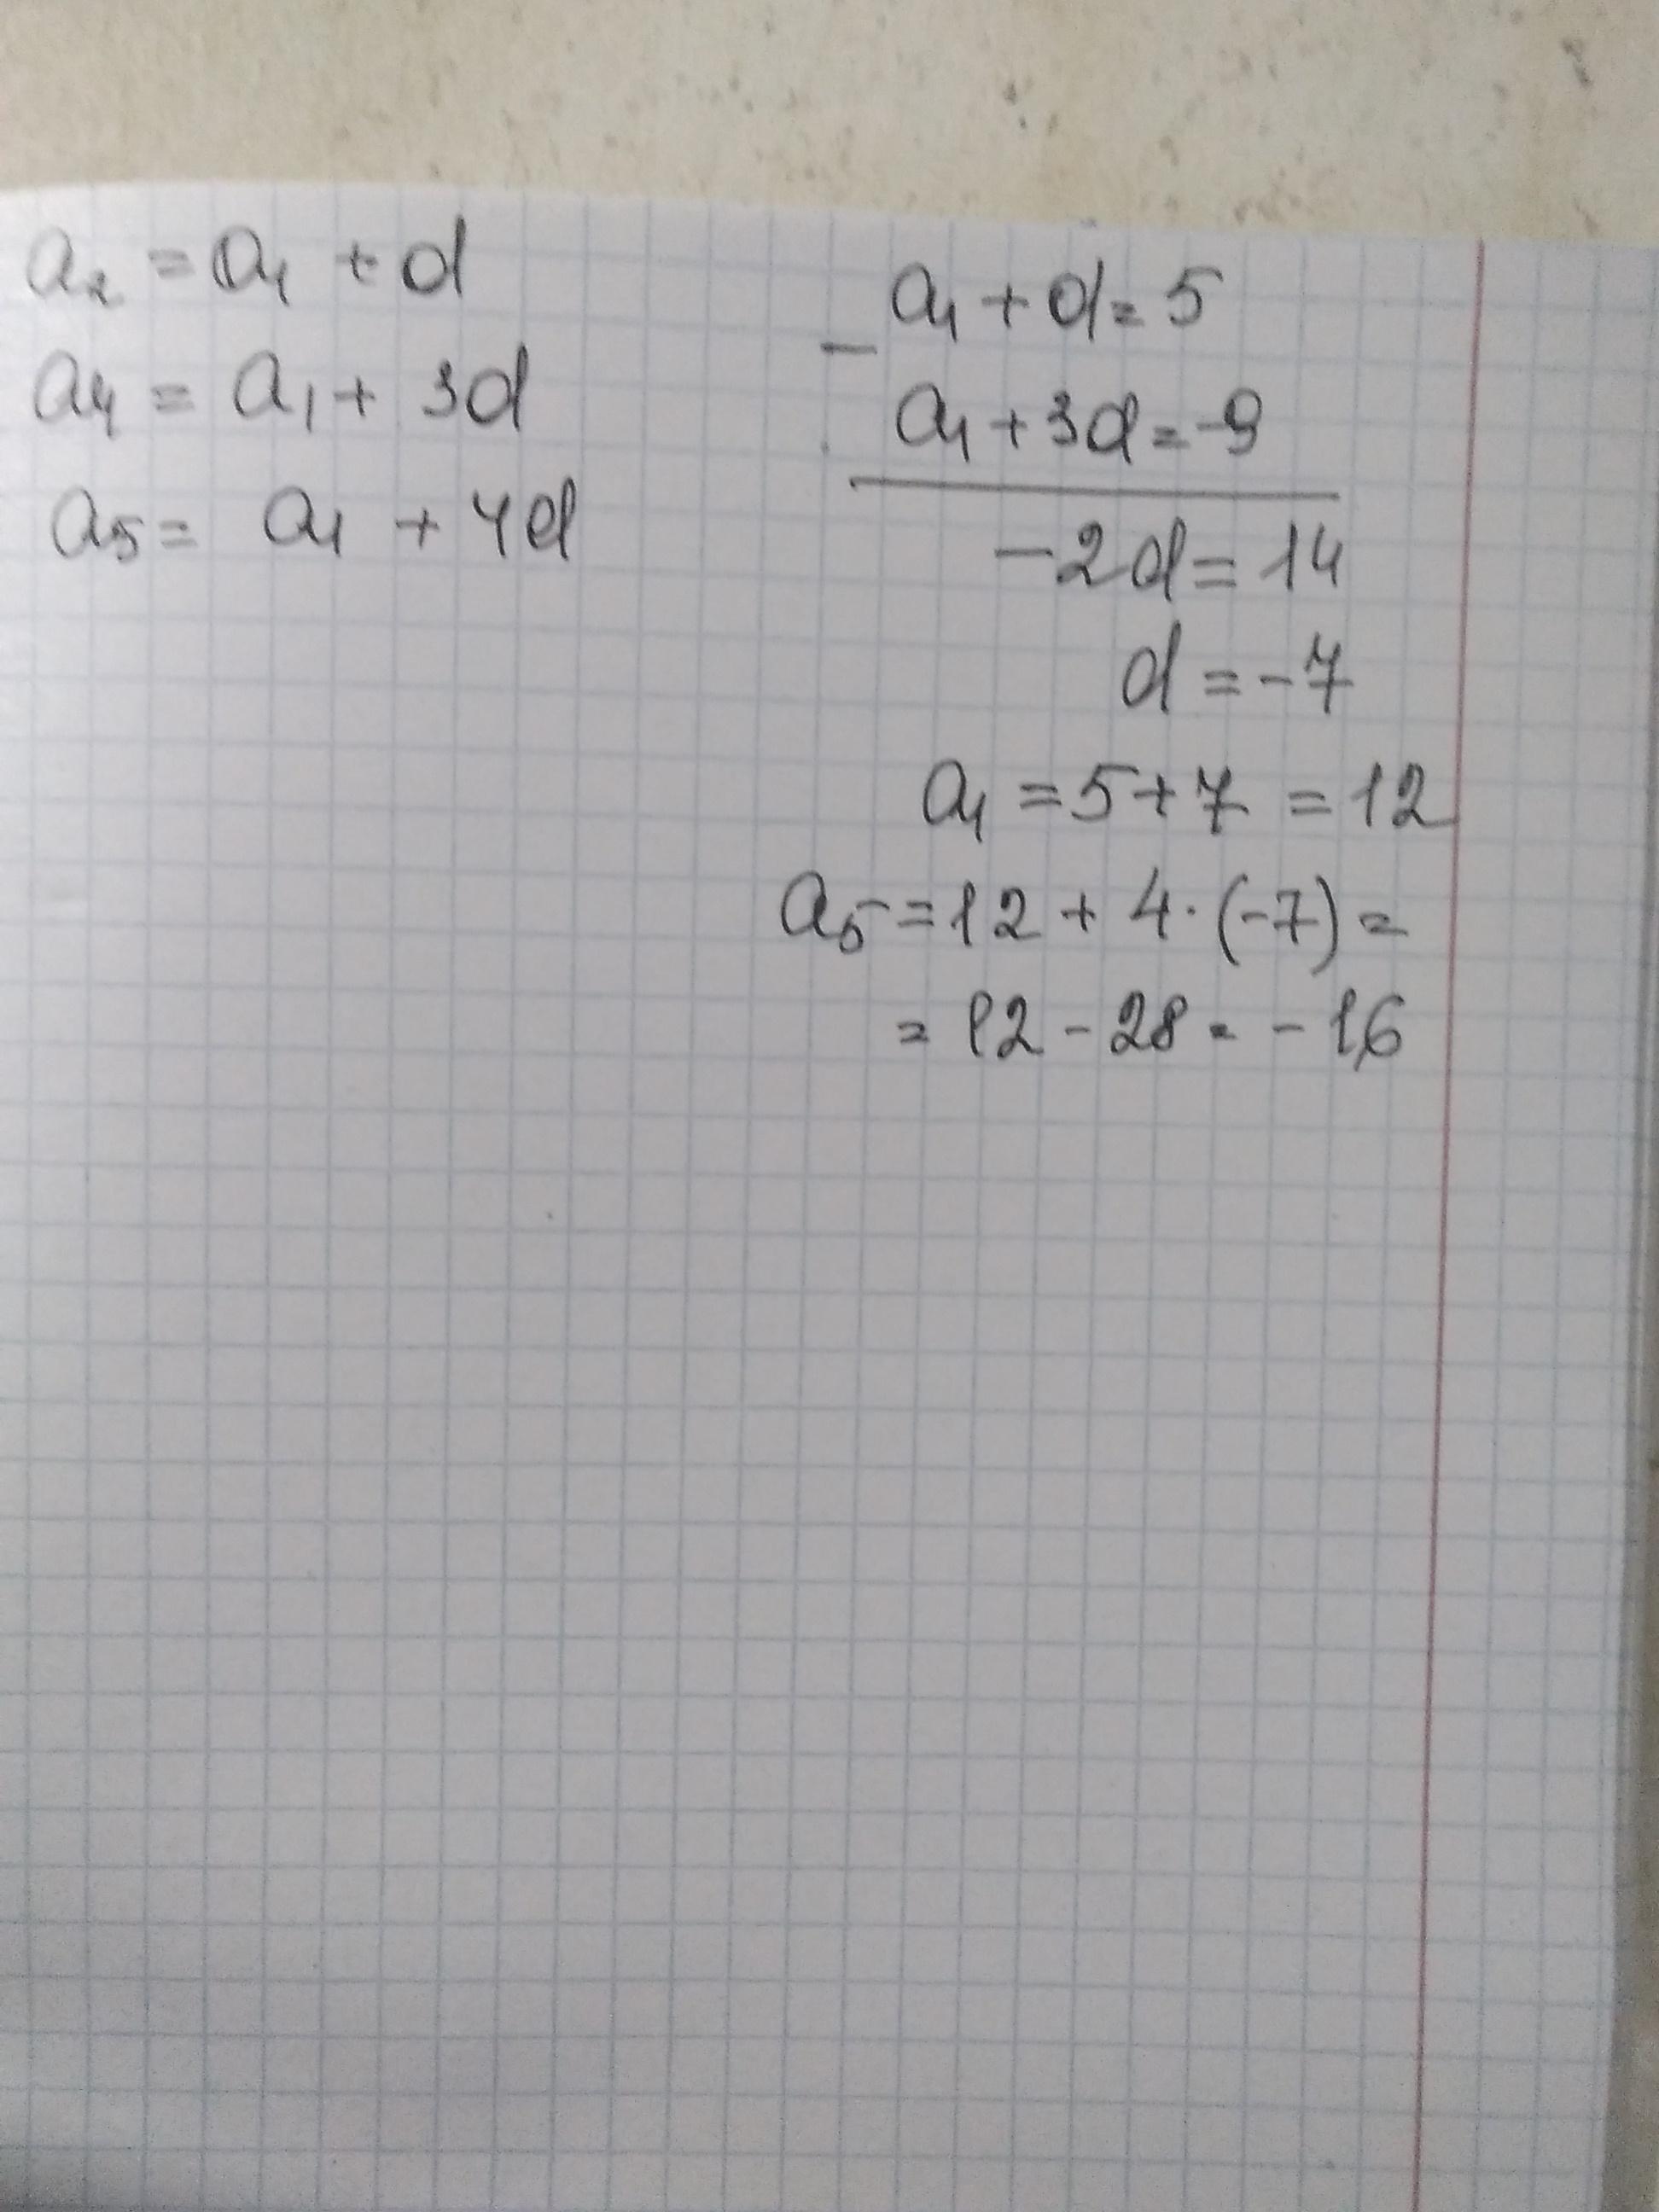 a₂ = a₁ + d
a₄ = a₁ + 3d
a₅ = a₁ + 4d
a₁ + d = 5
−
a₁ + 3d = -9
-2d = 14
d = -7
a₁ = 5 + 7 = 12
a₅ = 12 + 4 · (-7) =
= 12 - 28 = -16